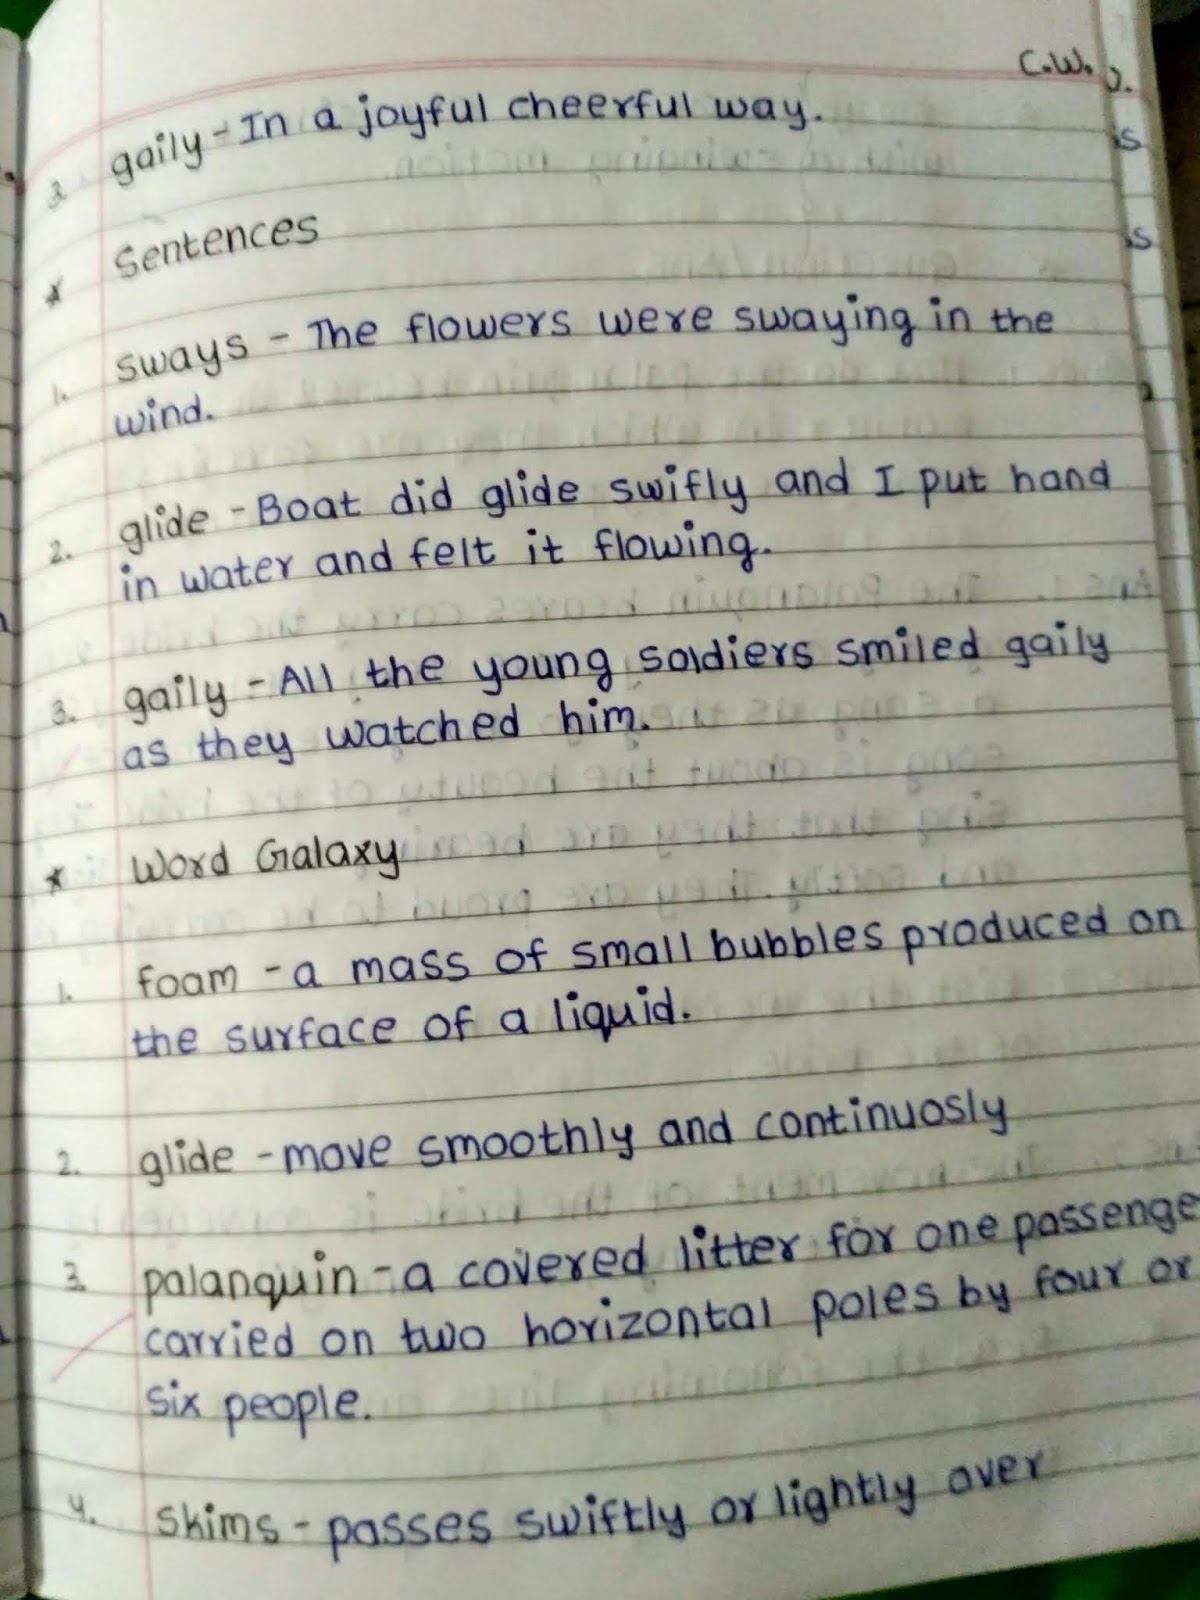 C.W.
3 gaily - In a joyful cheerful way.
* Sentences
1. sways - The flowers were swaying in the
wind.
2. glide - Boat did glide swifly and I put hand
in water and felt it flowing.
3. gaily - All the young soldiers smiled gaily
as they watched him.
* Word Galaxy
1. foam - a mass of small bubbles produced on
the surface of a liquid.
2. glide - move smoothly and continuosly
3. palanquin - a covered litter for one passenge
carried on two horizontal poles by four or
six people.
4. Skims - passes swiftly or lightly over